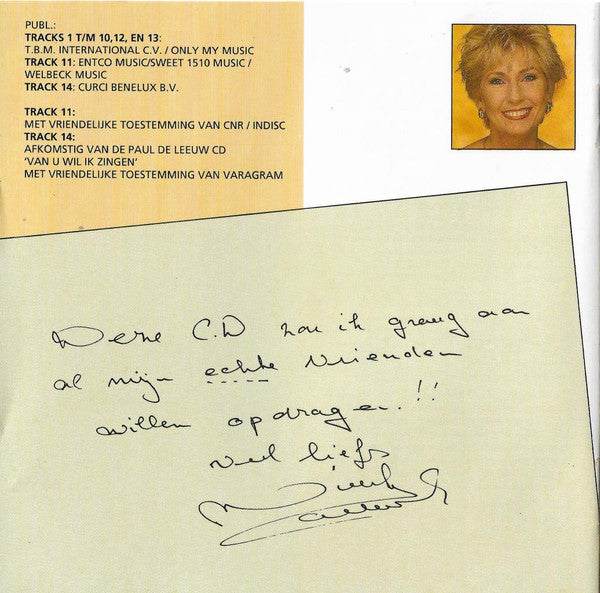 PUBL.:
TRACKS 1 T/M 10,12, EN 13:
T.B.M. INTERNATIONAL C.V. / ONLY MY MUSIC
TRACK 11: ENTCO MUSIC/SWEET 1510 MUSIC /
WELBECK MUSIC
TRACK 14: CURCI BENELUX B.V.
TRACK 11:
MET VRIENDELIJKE TOESTEMMING VAN CNR / INDISC
TRACK 14:
AFKOMSTIG VAN DE PAUL DE LEEUW CD
'VAN U WIL IK ZINGEN'
MET VRIENDELIJKE TOESTEMMING VAN VARAGRAM
Deze C.D zou ik graag aan
al mijn echte vrienden
willen opdragen.!!
veel liefs